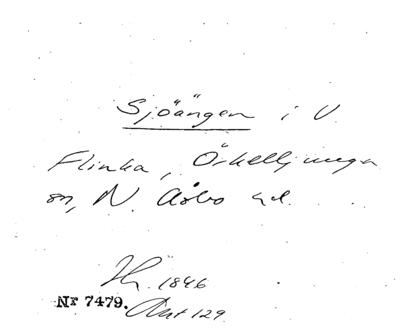 Sjöängen i V
Flinka, Örkelljunga
sn, N. Åsbo hd.
1846
Nr 7479. Akt 129